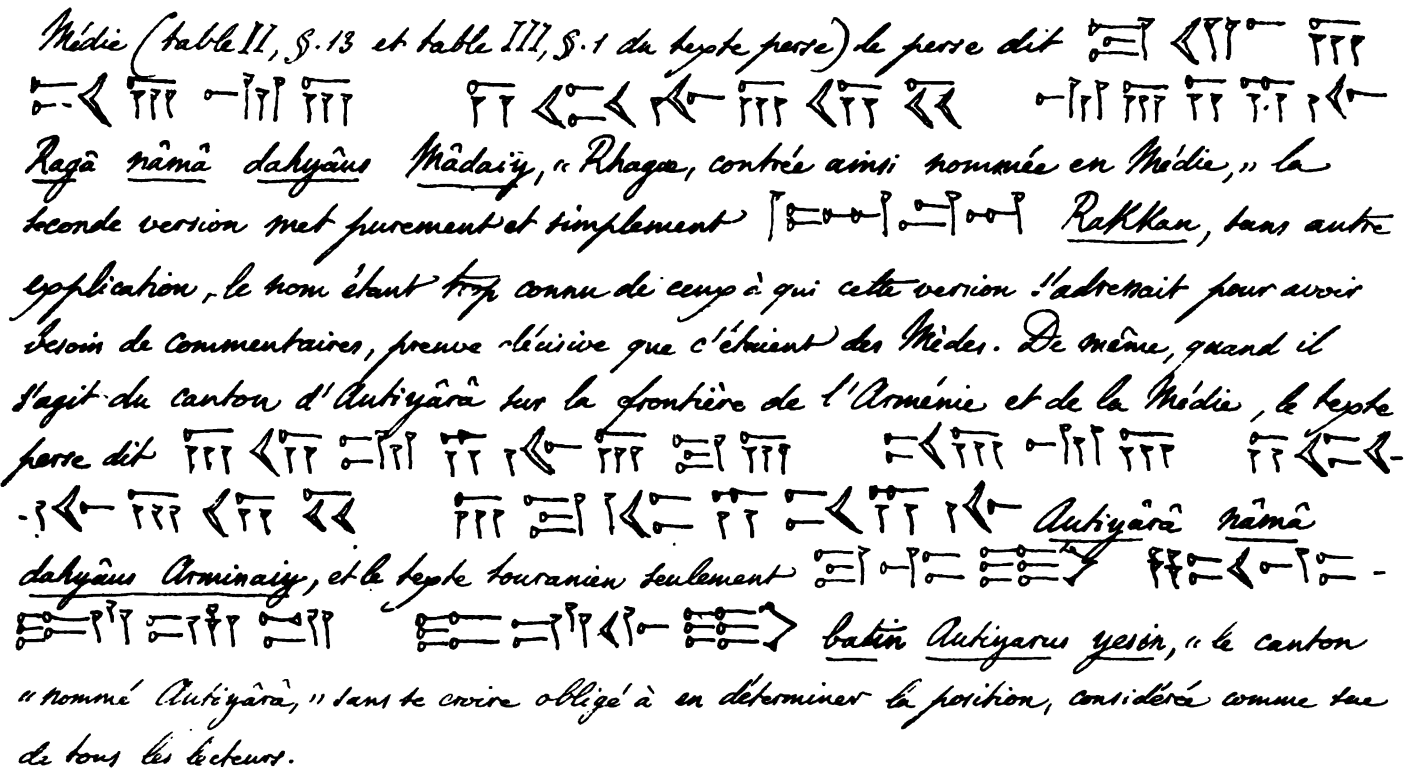 Médie (table II, §.13 et table III, §.1 du texte perse) le perse dit 𐎼𐎥𐎠
𐎴𐎠𐎶𐎠 𐎭𐏃𐎹𐎠𐎢𐏁 𐎶𐎠𐎭𐎡𐎹
Ragâ nâmâ dahyâus Mâdaïy, „Rhagæ, contrée ainsi nommée en Médie," la
seconde version met purement et simplement Rakkan, sans autre
explication, le nom étant trop connu de ceux à qui cette version s'adressait pour avoir
besoin de commentaires, preuve décisive que c'étaient des Mèdes. De même, quand il
s'agit du canton d'Autiyârâ sur la frontière de l'Arménie et de la Médie, le texte
perse dit 𐎠𐎢𐎫𐎡𐎹𐎠𐎼𐎠 𐎴𐎠𐎶𐎠 𐎭𐏃-
-𐎹𐎠𐎢𐏁 𐎠𐎼𐎷𐎡𐎴𐎡𐎹 Autiyârâ nâmâ
dahyâus Arminaiy, et le texte touranien seulement
batin Autiyarus yesin, „le canton
„nommé Autiyârâ," sans se croire obligé à en déterminer la position, considérée comme sue
de tous les lecteurs.